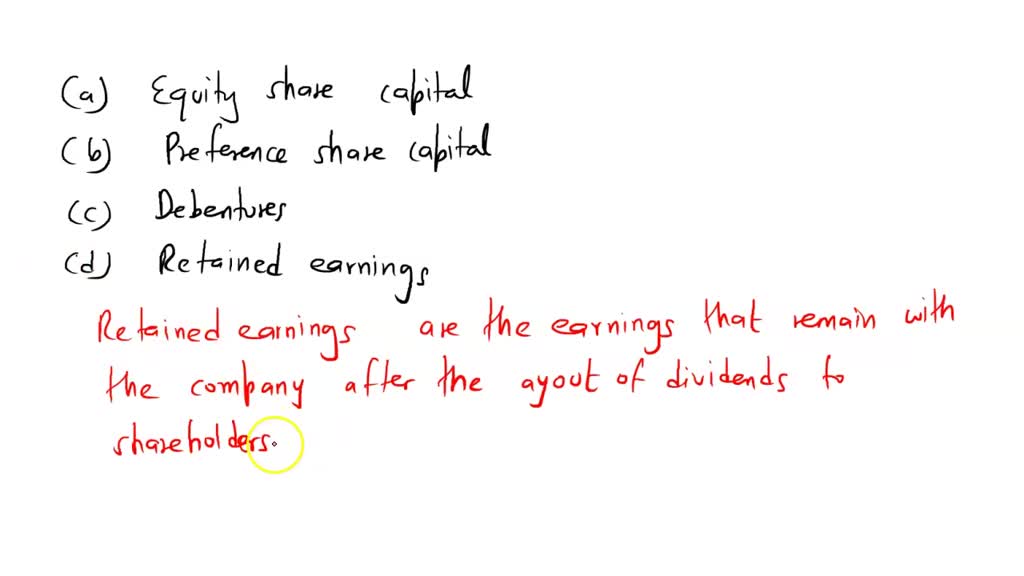 (a) Equity share capital
(b) Preference share capital
(c) Debentures
(d) Retained earnings
Retained earnings are the earnings that remain with
the company after the ayout of dividends to
shareholders.